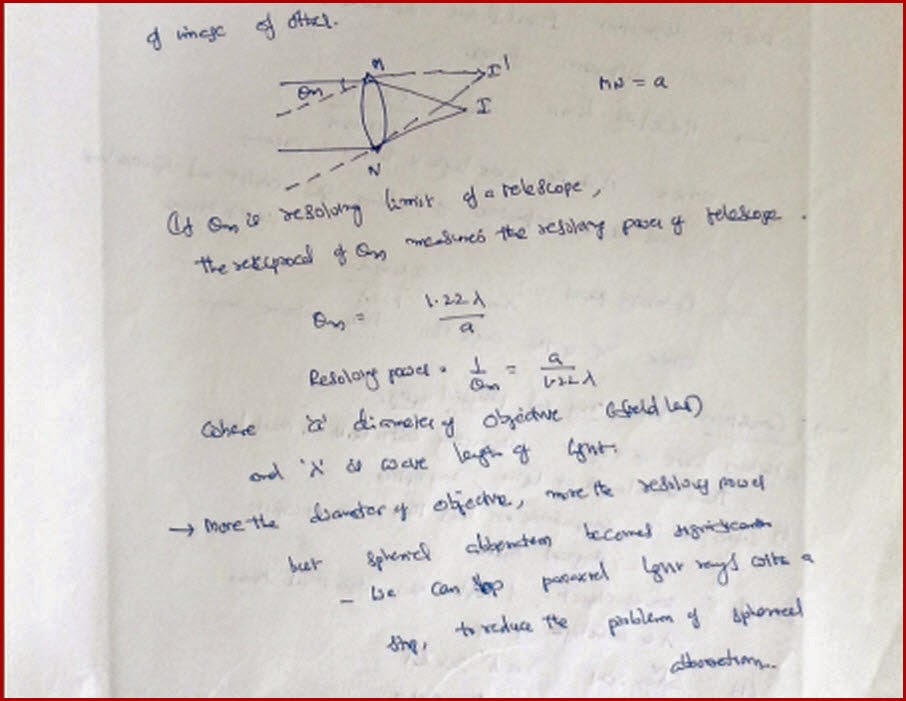 of image of other.
M
θm
I'
MN = a
I
N
If θm is resolving limit of a telescope,
the reciprocal of θm measures the resolving power of telescope.
θm = 1.22 λ / a
Resolving power = 1/θm = a / 1.22 λ
Where 'a' diameter of objective (field lens)
and 'λ' is wave length of light.
→ More the diameter of objective, more the resolving power
but spherical abberation becomes significant
- We can stop paraxial light rays with a
stop, to reduce the problem of spherical
abberation..